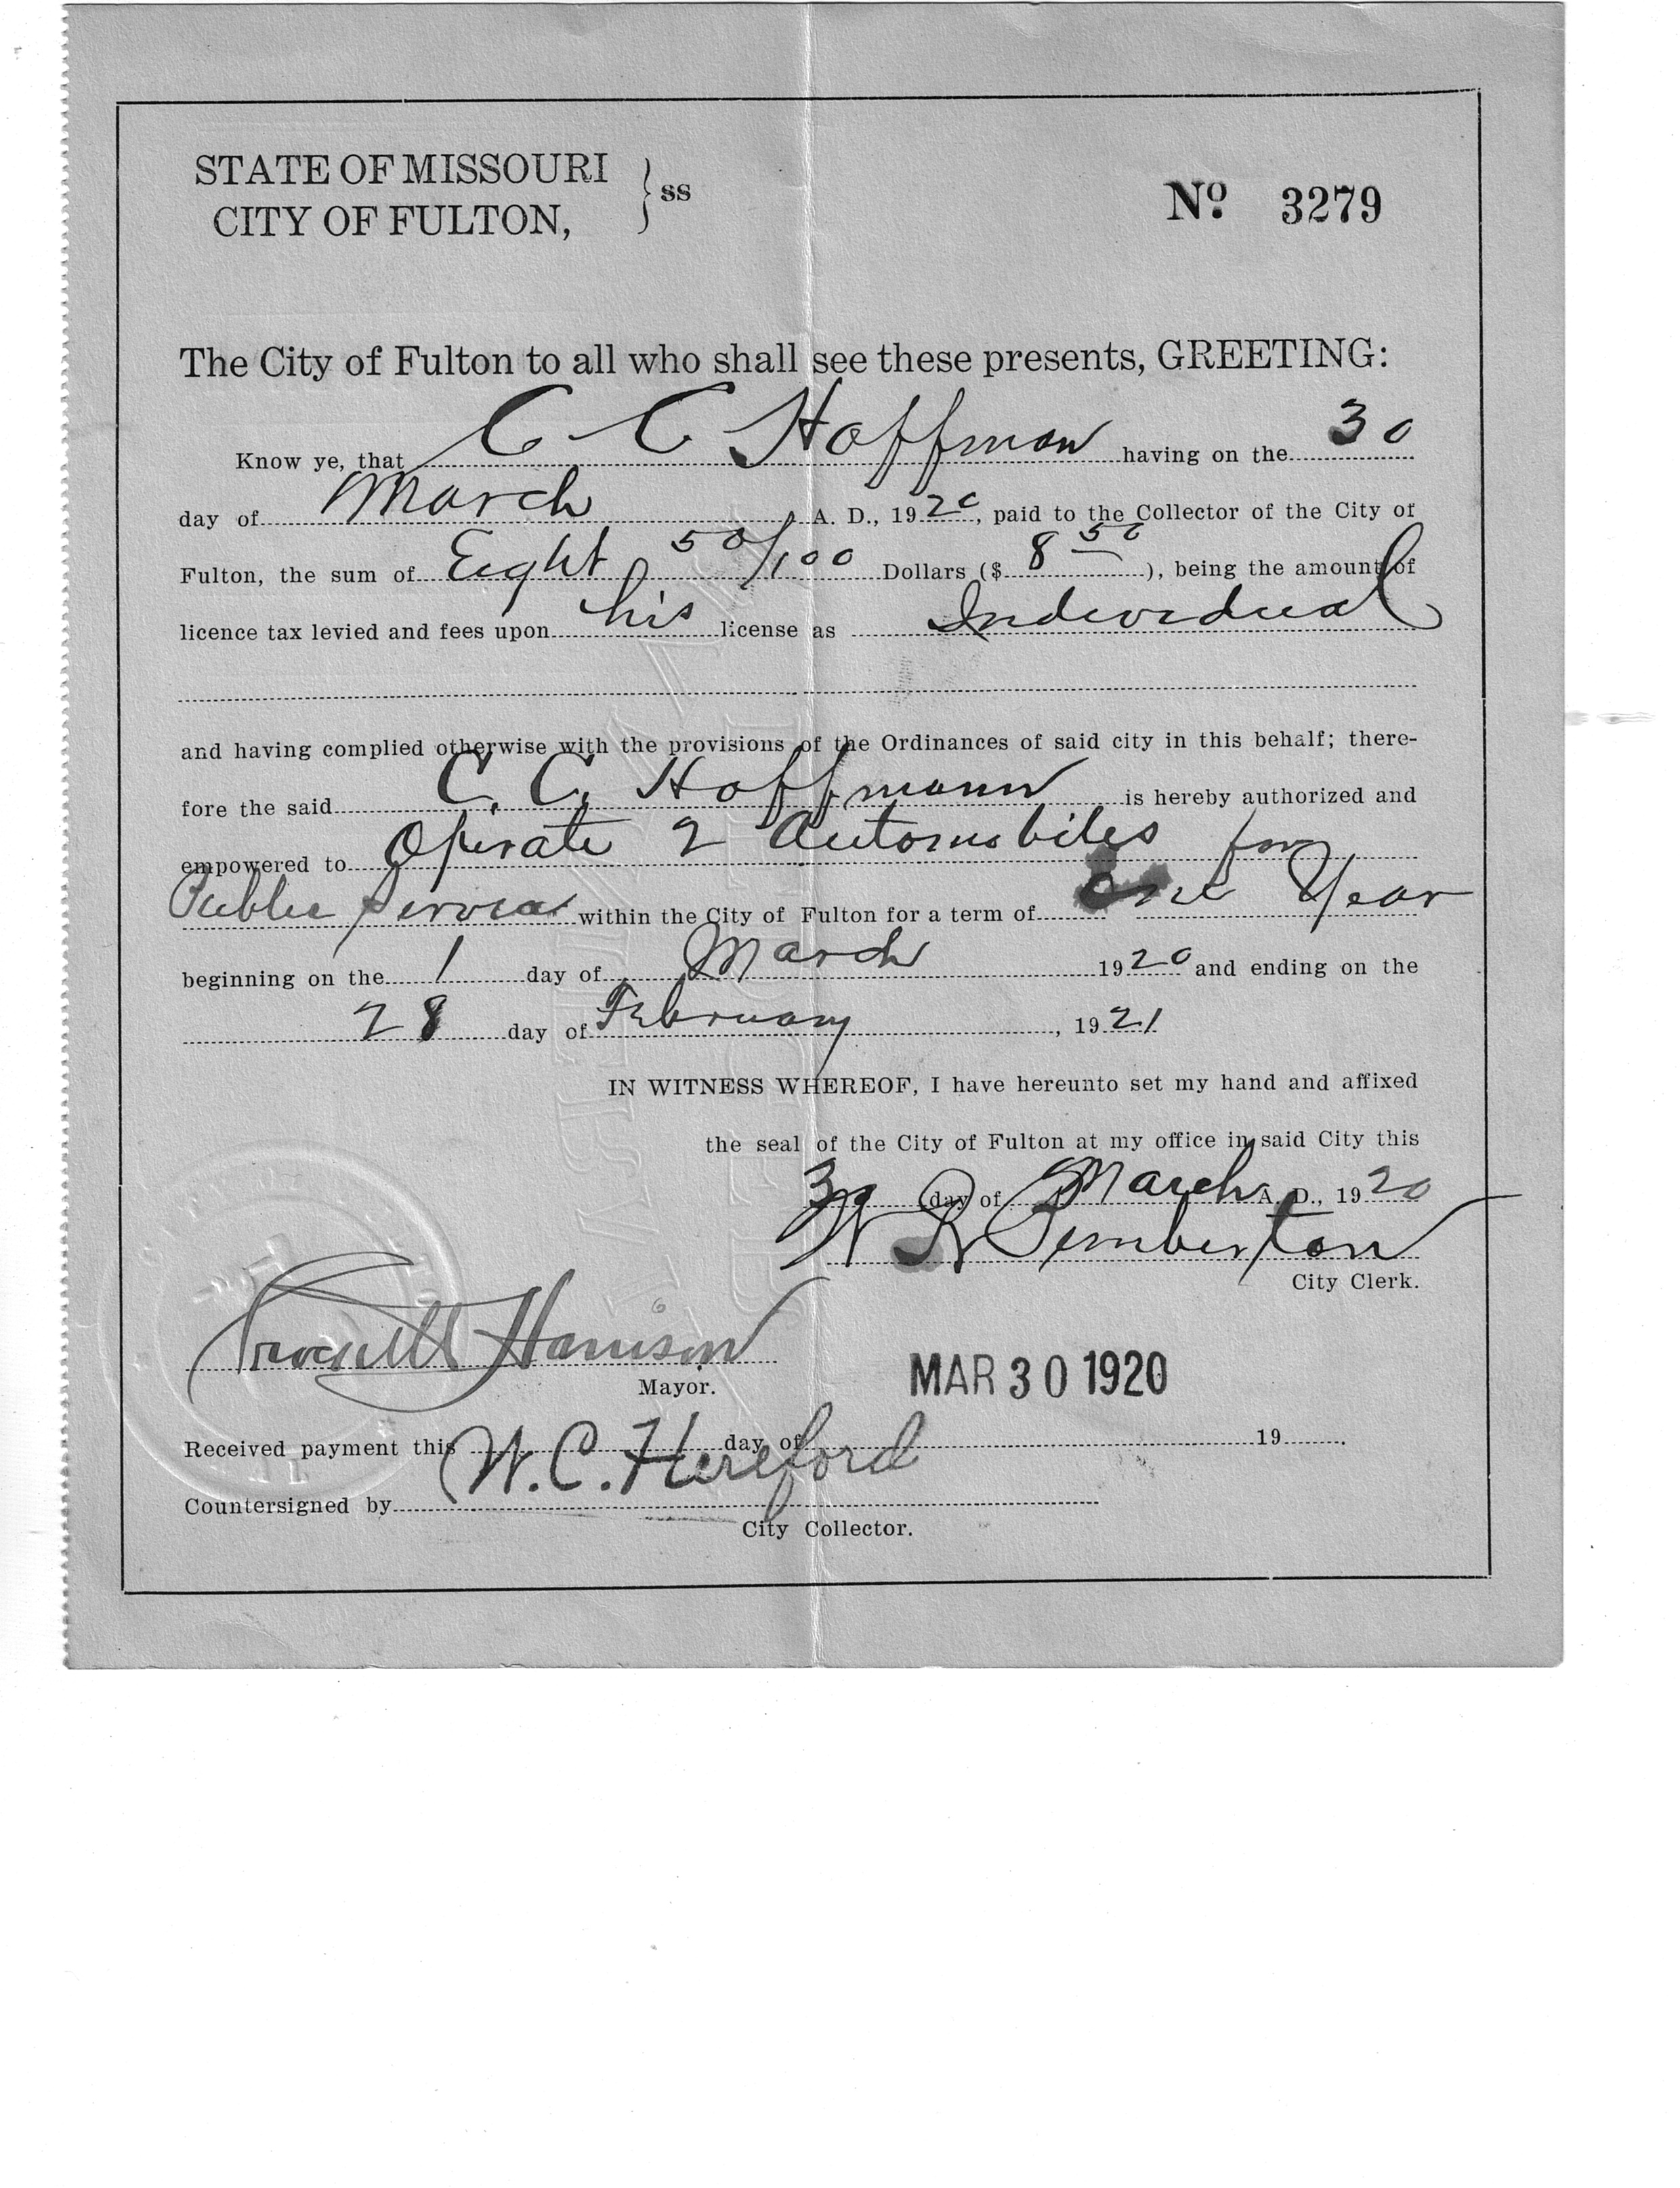 STATE OF MISSOURI
CITY OF FULTON, } ss
Nº 3279
The City of Fulton to all who shall see these presents, GREETING:
Know ye, that C C Hoffman having on the 30
day of March A. D., 1920, paid to the Collector of the City of
Fulton, the sum of Eight 50/100 Dollars ($ 8 50), being the amount of
licence tax levied and fees upon his license as Individual
and having complied otherwise with the provisions of the Ordinances of said city in this behalf; there-
fore the said C. C. Hoffmann is hereby authorized and
empowered to Operate 2 Automobiles for
Public Service within the City of Fulton for a term of One Year
beginning on the 1 day of March 1920 and ending on the
28 day of February, 1921
IN WITNESS WHEREOF, I have hereunto set my hand and affixed
the seal of the City of Fulton at my office in said City this
30 day of March A. D., 1920
W R Pemberton
City Clerk.
Harrison
Mayor.
MAR 30 1920
Received payment this day of 19
W. C. Hereford
Countersigned by
City Collector.